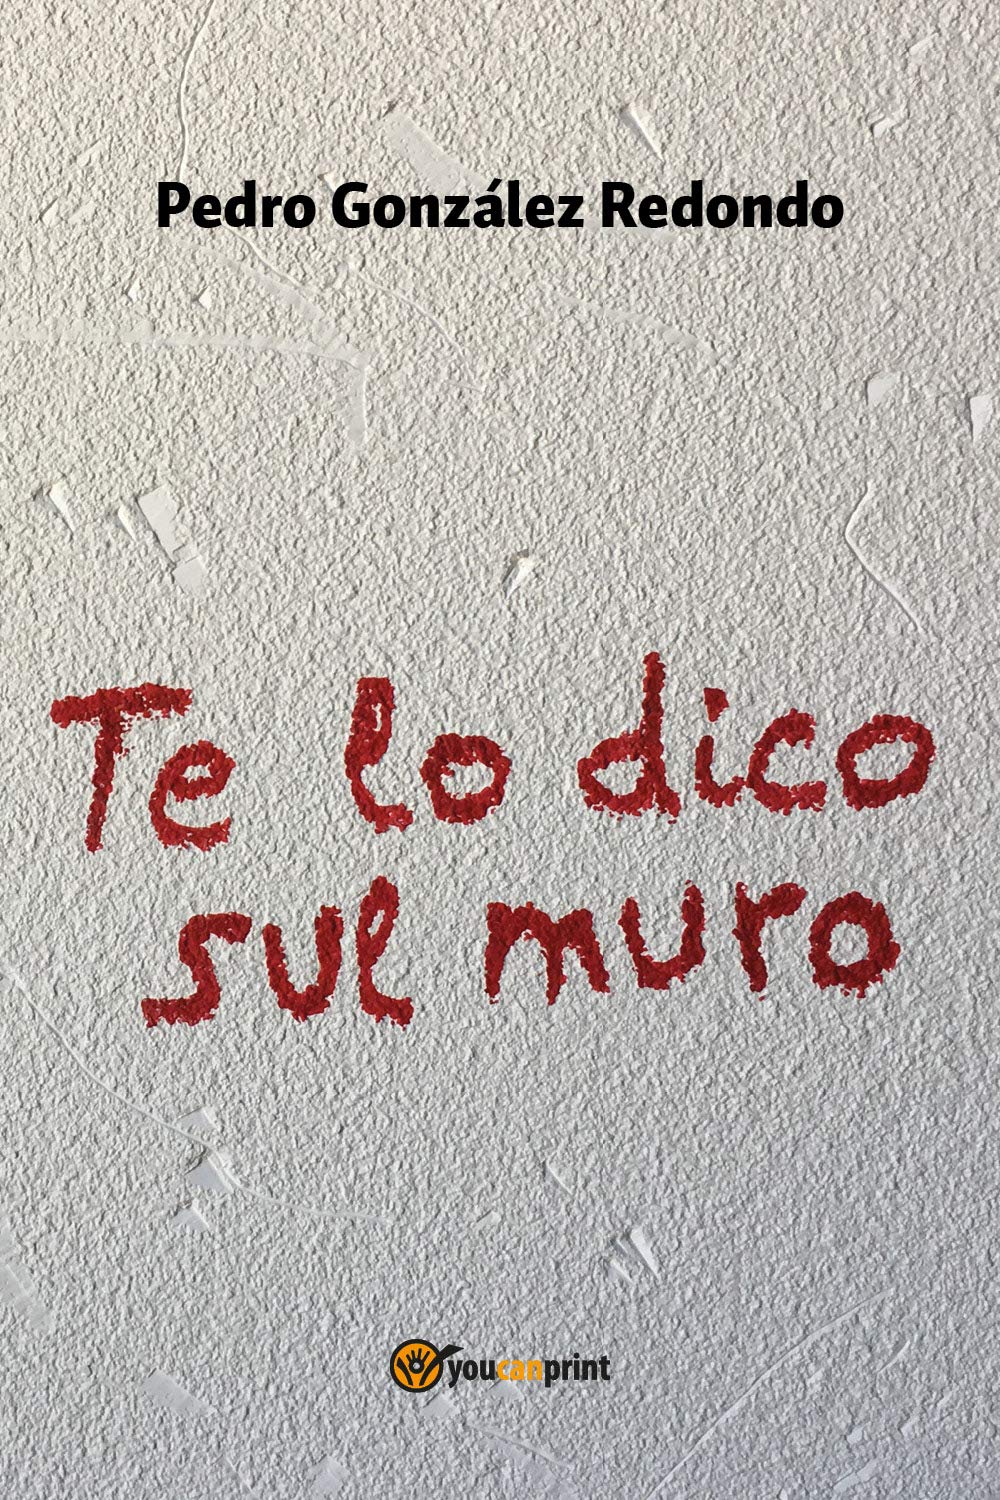 Pedro González Redondo
Te lo dico
sul muro
youcanprint